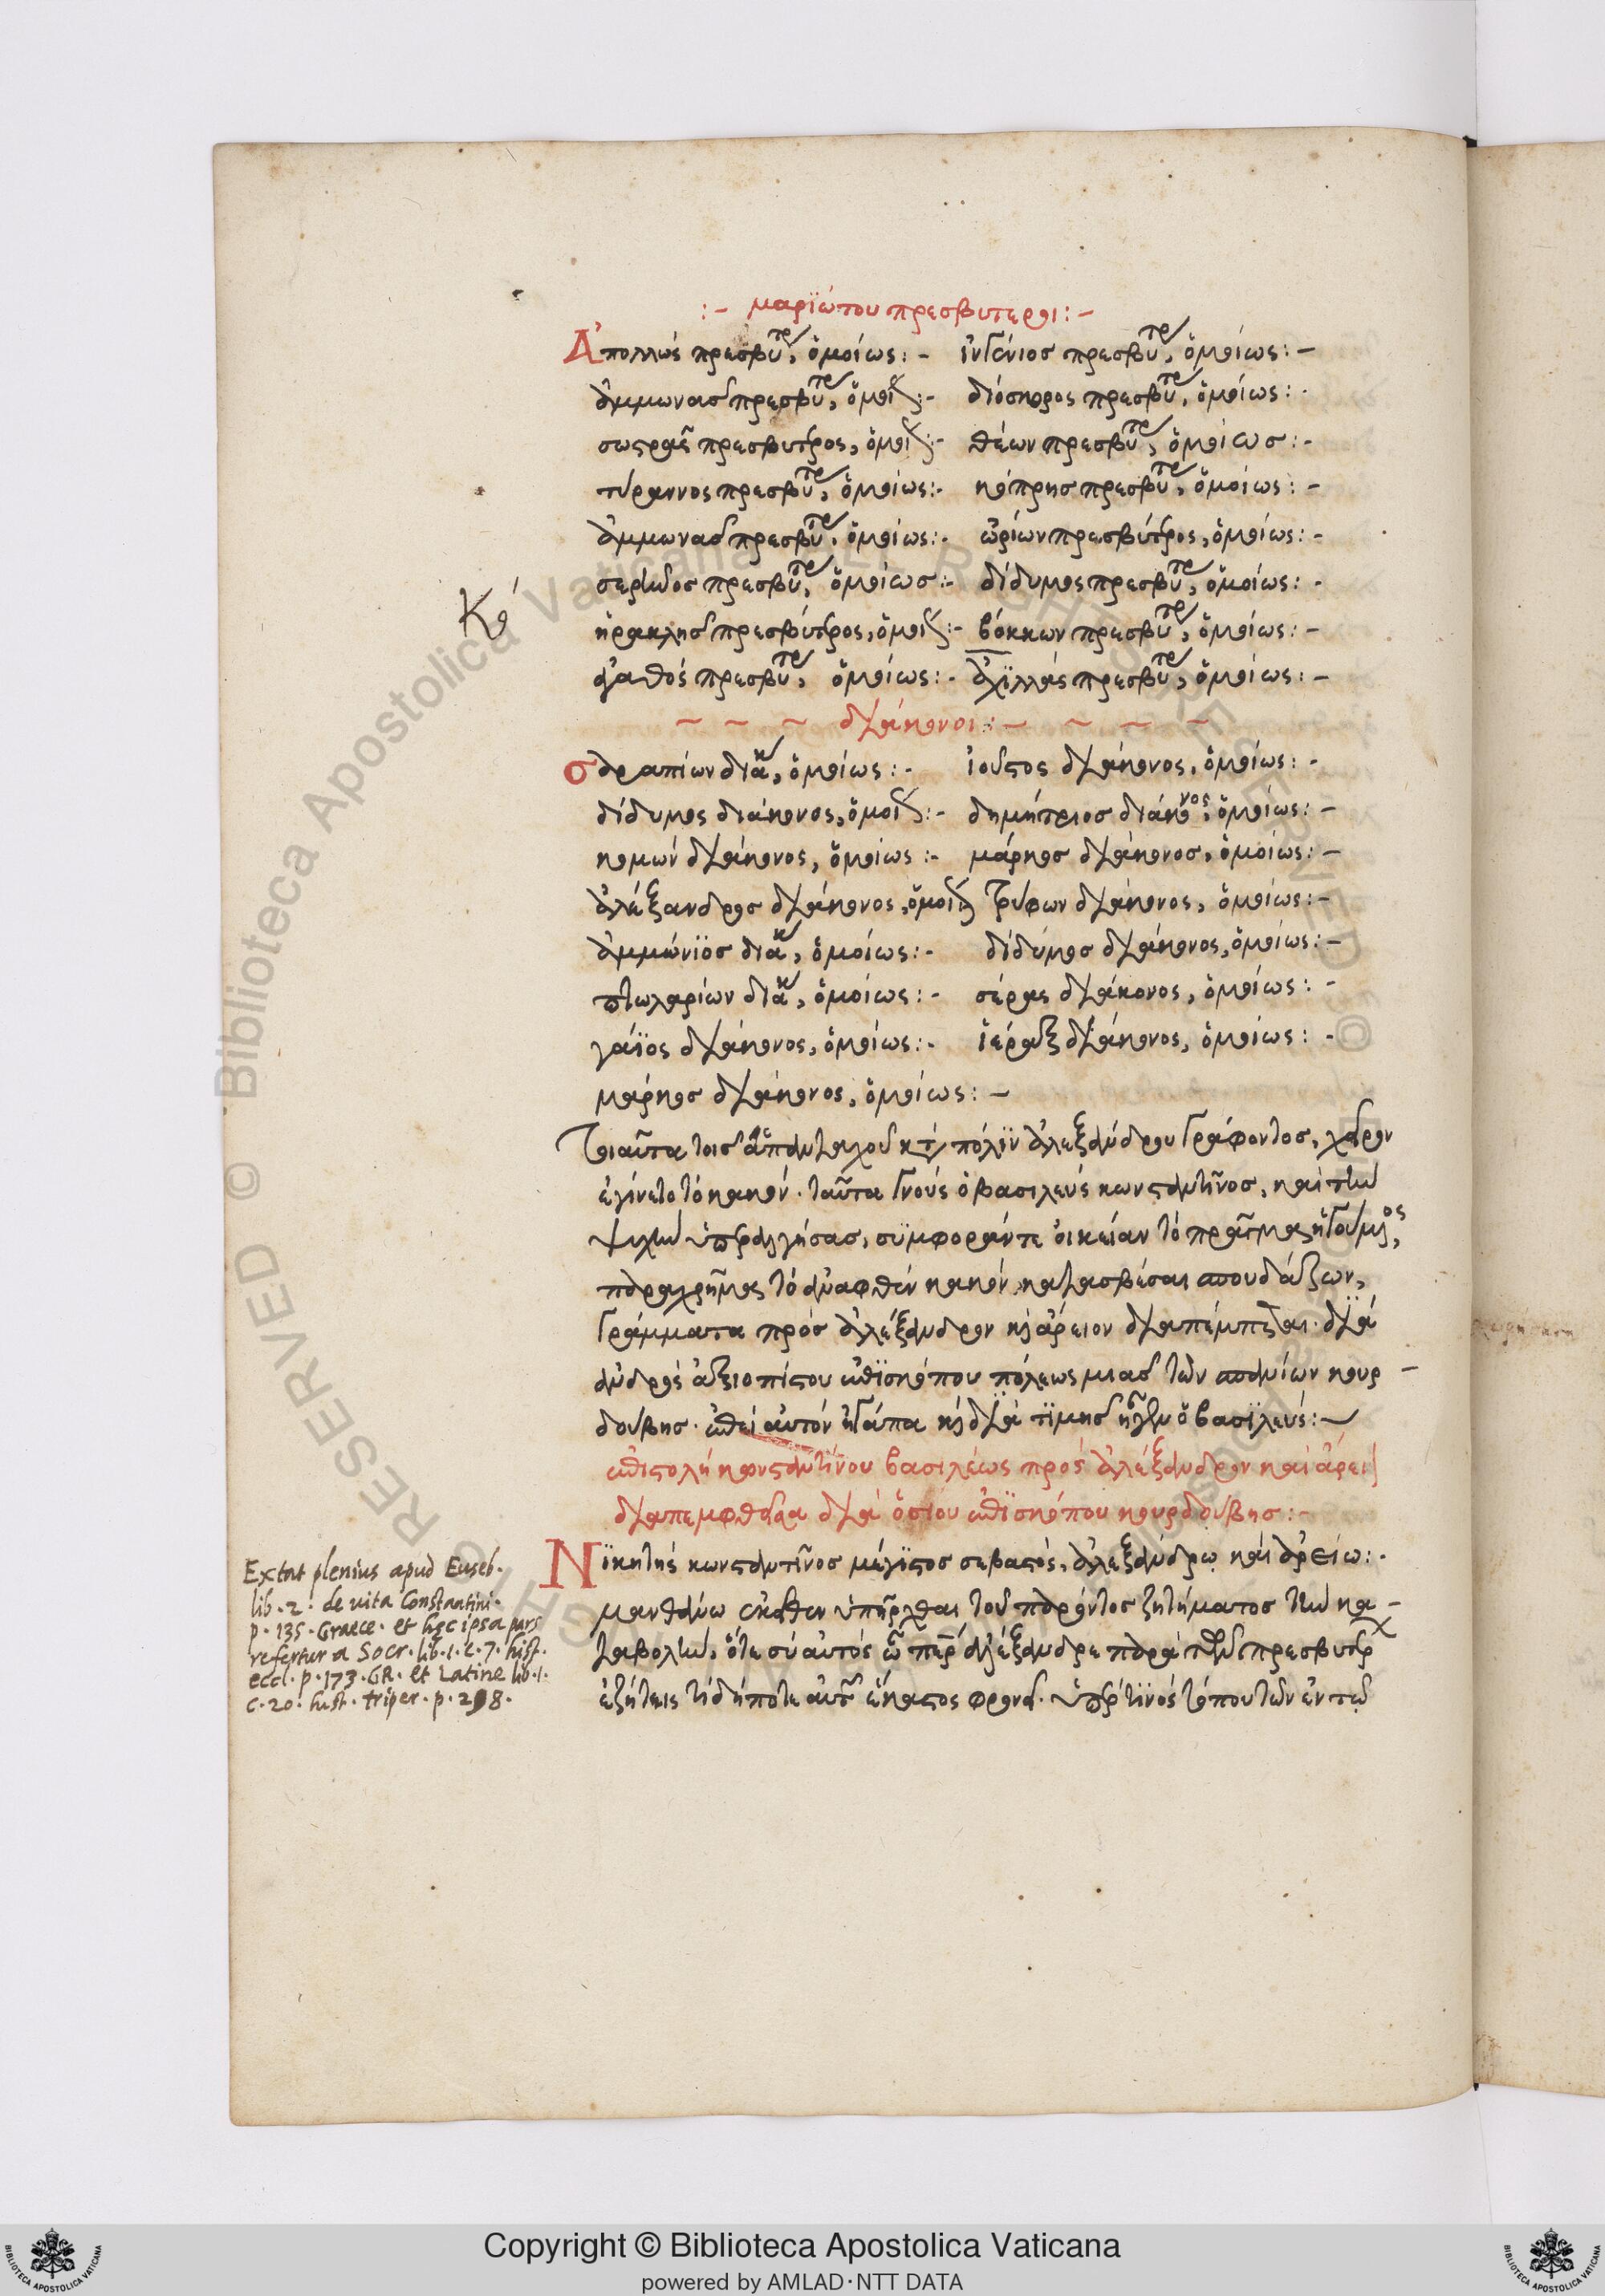 :- μαρϊώτου πρεσβυτεροι :-
Ἀπολλώς πρεσβύτρ, ὁμοίως :- ἰνγένιος πρεσβύτρ, ὁμοίως :-
ἀμμωνας πρεσβύτρ, ὁμοί :- διόσκορος πρεσβύτρ, ὁμοίως :-
σωςρας πρεσβυτρος, ὁμοί :- θέων πρεσβύτρ, ὁμοίως :-
τύραννος πρεσβύτρ, ὁμοίως :- κόπρης πρεσβύτρ, ὁμοίως :-
ἀμμωνας πρεσβύτρ, ὁμοίως :- ὠρίων πρεσβύτρος, ὁμοίως :-
σερῆνος πρεσβύτρ, ὁμοίως :- δίδυμος πρεσβύτρ, ὁμοίως :-
ἡρακλης πρεσβύτρος, ὁμοί :- βόκκων πρεσβύτρ, ὁμοίως :-
ἀγαθός πρεσβύτρ, ὁμοίως :- ἀχϊλλάς πρεσβύτρ, ὁμοίως :-
διάκονοι :-
σαραπίων διάκ, ὁμοίως :- ἰοῦστος διάκονος, ὁμοίως :-
δίδυμος διάκονος, ὁμοί :- δημήτριος διάκονος, ὁμοίως :-
κομών διάκονος, ὁμοίως :- μάρκος διάκονος, ὁμοίως :-
ἀλέξανδρος διάκονος, ὁμοί τρύφων διάκονος, ὁμοίως :-
ἀμμώνϊος διάκ, ὁμοίως :- διδύμος διάκονος, ὁμοίως :-
πτωλαρίων διάκ, ὁμοίως :- σέρας διάκονος, ὁμοίως :-
γάϊος διάκονος, ὁμοίως :- ἱέραξ διάκονος, ὁμοίως :-
μάρκος διάκονος, ὁμοίως :-
τοιαῦτα τοις ἁπανταχοῦ πόλϊν ἀλεξάνδρου γράφοντος, χεῖρον
ἐγίνετο τό κακόν. ταῦτα γνούς ὁ βασιλεύς κωνσταντῖνος, καί τήν
ψυχήν ὑπεραλγήσας, συμφοράν τε οἰκείαν τό πρᾶγμα ἡγούμενος,
παραχρῆμα τό ἀναφθέν κακόν κατασβέσαι σπουδάζων,
γράμματα πρός ἀλέξανδρον καί ἄρειον διαπέμπεται. διά
ἀνδρός ἀξιοπίστου ἐπϊσκόπου πόλεως μιας τῶν σπανίων κουρ-
δούβης. ἐπεί αὐτόν ἠγάπα καί διά τϊμης ἦγεν ὁ βασϊλεύς :-
ἐπιστολή κωνσταντίνου βασιλέως πρός ἀλέξανδρον καί ἄρει
διαπεμφθεῖσα διά ὁσίου ἐπϊσκόπου κουρδούβης :-
Νϊκητής κωνσταντῖνος μέγϊστος σεβαστός, ἀλεξάνδρῳ καί ἀρείω :-
μανθάνω ἐκεῖθεν ὑπῆρχθαι τοῦ παρόντος ζητήματος τήν κα-
ταβολήν, ὅτε σύ αὐτός ὦ περ ἀλέξανδρε παρά τῶν πρεσβυτέρ
ἐζήτεις τί δήποτε αὐτῶν ἕκαστος φρονεῖ. ὑπέρ τϊνός τόπου τῶν ἐν τῷ
Extat plenius apud Euseb.
lib. 2. de vita Constantini.
p. 135. Graece. et hęc ipsa pars
refertur a Socr. lib. 1. c. 7. hist.
eccl. p. 173. GR. et Latine lib. 1.
c. 20. hist. triper. p. 298.
Copyright © Biblioteca Apostolica Vaticana
powered by AMLAD·NTT DATA